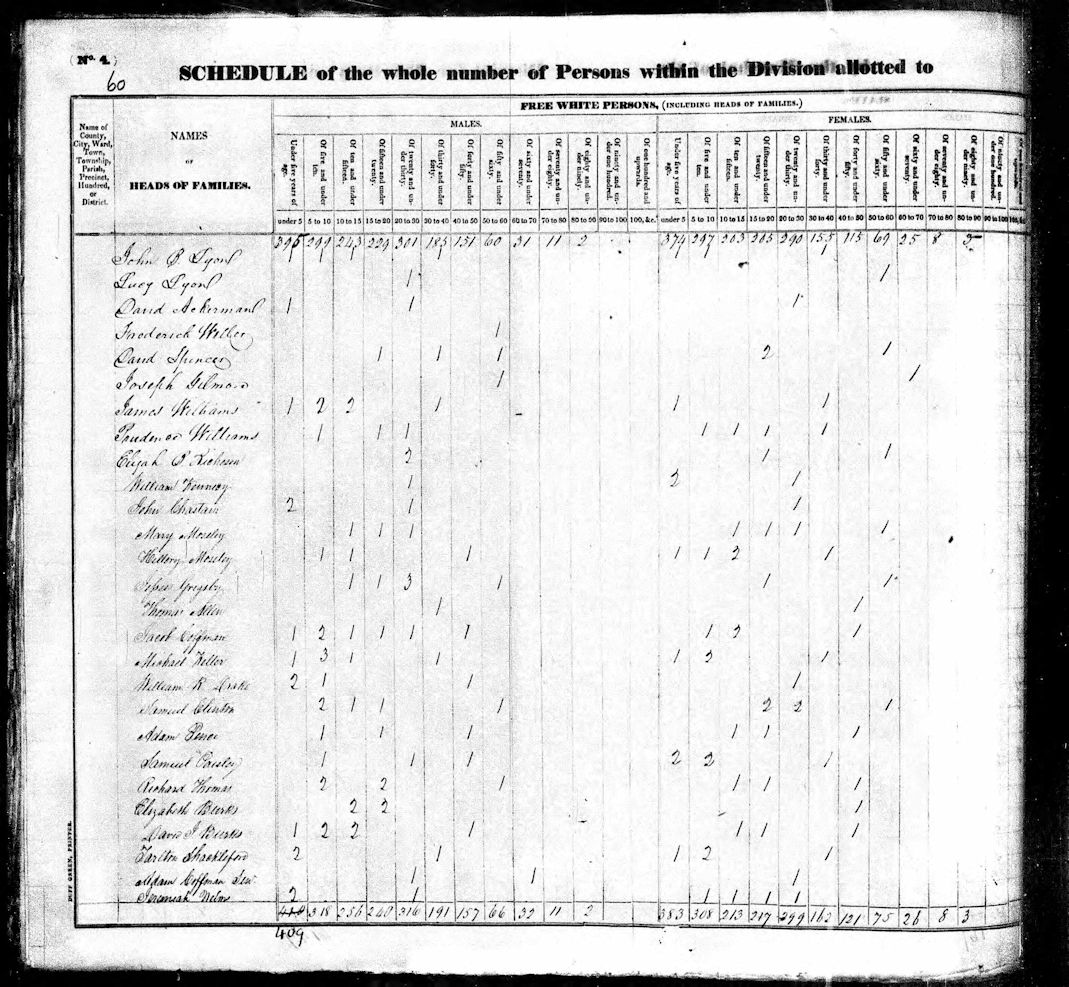 (No. 4.)
60
SCHEDULE of the whole number of Persons within the Division allotted to
Name of County, City, Ward, Town, Township, Parish, Precinct, Hundred, or District.
NAMES
OF
HEADS OF FAMILIES.
FREE WHITE PERSONS, (INCLUDING HEADS OF FAMILIES.)
MALES.
FEMALES.
Under five years of age. Of five and under ten. Of ten and under fifteen. Of fifteen and under twenty. Of twenty and under thirty. Of thirty and under forty. Of forty and under fifty. Of fifty and under sixty. Of sixty and under seventy. Of seventy and under eighty. Of eighty and under ninety. Of ninety and under one hundred. Of one hundred and upwards. Under five years of age. Of five and under ten. Of ten and under fifteen. Of fifteen and under twenty. Of twenty and under thirty. Of thirty and under forty. Of forty and under fifty. Of fifty and under sixty. Of sixty and under seventy. Of seventy and under eighty. Of eighty and under ninety. Of ninety and under one hundred.
under 5 5 to 10 10 to 15 15 to 20 20 to 30 30 to 40 40 to 50 50 to 60 60 to 70 70 to 80 80 to 90 90 to 100 100, &c. under 5 5 to 10 10 to 15 15 to 20 20 to 30 30 to 40 40 to 50 50 to 60 60 to 70 70 to 80 80 to 90 90 to 100 100, &c
395 299 243 229 301 185 151 60 31 11 2 374 297 203 205 290 155 115 69 25 8 3
John B. Lyons
Lucy Lyons 1 1
David Ackerman 1 1 1
Frederick 1
David Spencer 1 1 1 2 1
Joseph Gilmore 1 1
James Williams 1 2 2 1 1 1
Prudence Williams 1 1 1 1 1 1 1
Elijah 2 1 1
William 1 2 1
John Chastain 2 1 1
Mary Moseley 1 1 1 1 1 1 1
Hillery Moseley 1 1 1 1 1 2 1
Grigsby 1 1 3 1 1 1
Thomas Allen 1 1
Jacob 1 2 1 1 1 1 1 2 1
Michael Keller 1 3 1 1 1 2 1
William R. Drake 2 1 1 1
Samuel Clinton 2 1 1 1 2 2 1
Adam 1 1 1 1 1 1
Samuel 1 1 1 2 2 1
Richard Thomas 2 2 1 1 1 1
Elizabeth 2 2 1
David J 1 2 2 1 1 1 1
Tarlton Shackleford 2 1 1 2 1
Adam Coffman 1 1 1
Jeremiah 2 1 1 1 1 1
410 318 256 240 316 191 157 66 32 11 2 383 308 213 217 299 162 121 75 26 8 3
409
DUFF GREEN, PRINTER.